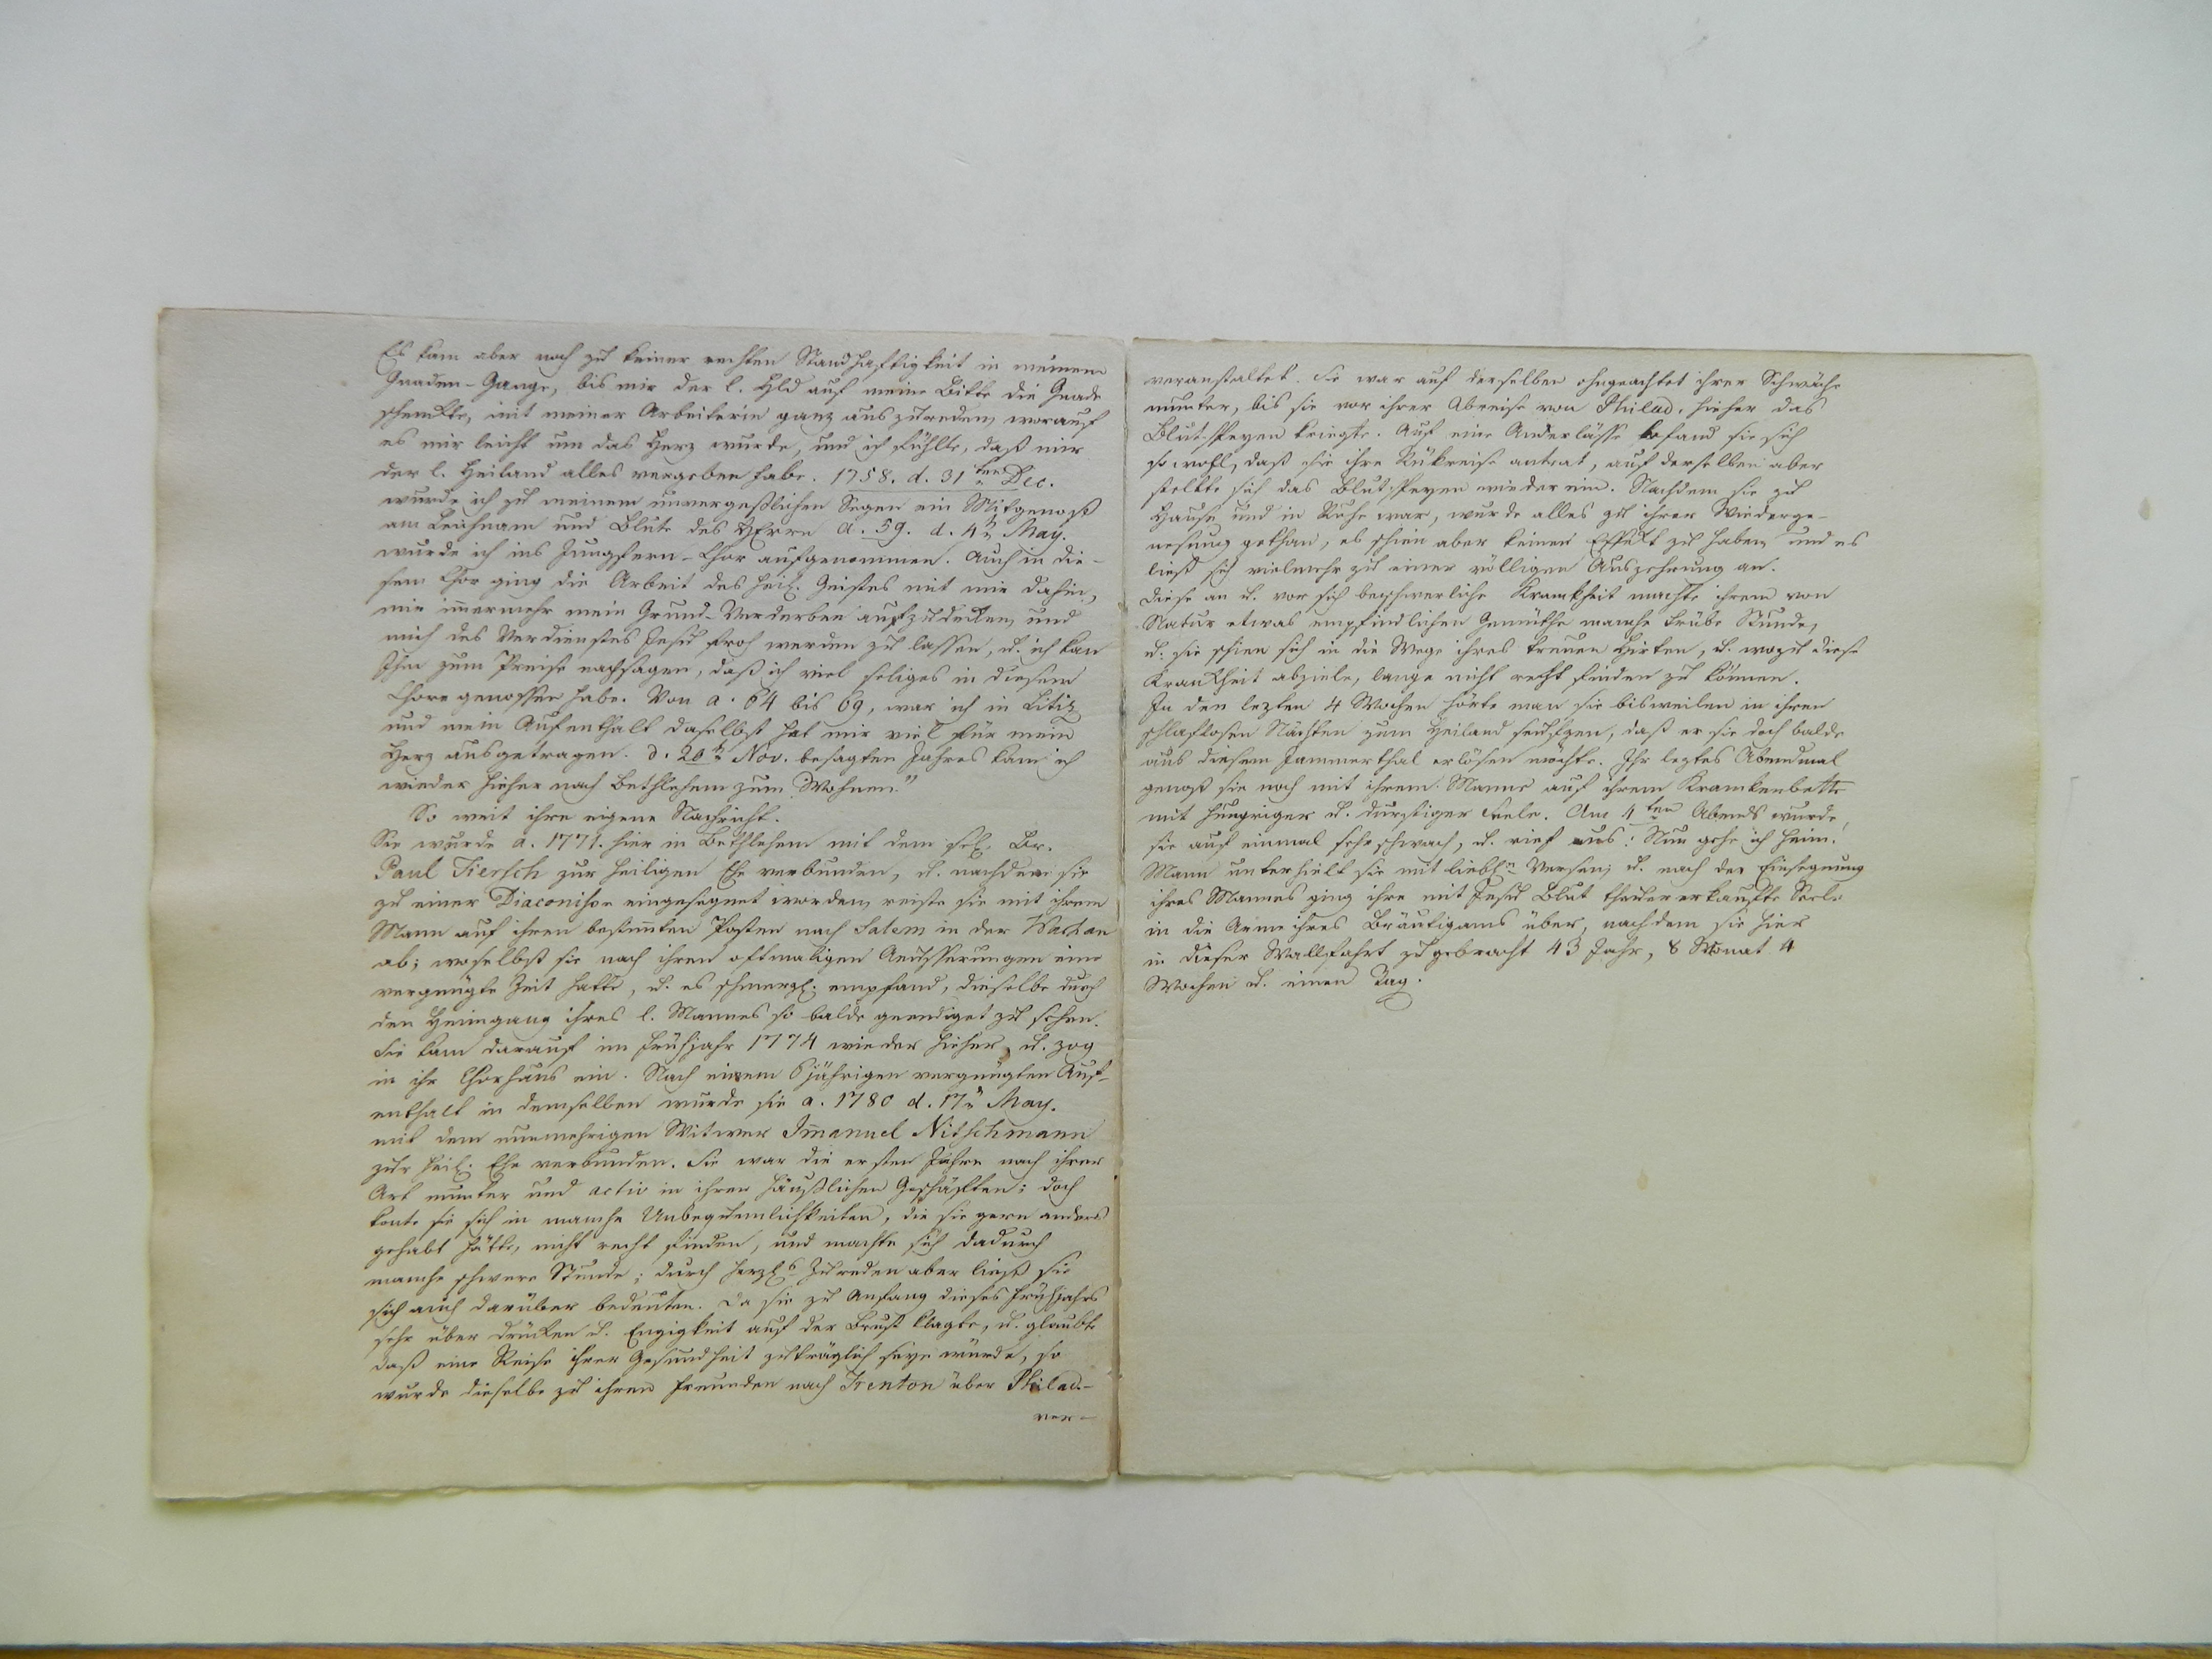 Es kam aber noch zu keiner rechten Standhaftigkeit in meinem
Gnaden-Gange, bis mir der l. Hld auf meine Bitte die Gnade
schenkte, mit meiner Arbeiterin ganz auszureden, worauf
es mir leicht um das Herz wurde, und ich fühlte, daß mir
der l. Heiland alles vergeben habe. 1758. d. 31ten Dec.
wurde ich zu meinem unvergeßlichen Segen ein Mitgenoß
am Leichnam und Blute des HErrn. A. 59. d. 4tn May.
wurde ich ins Jungfern-Chor aufgenommen. Auch in die-
sem Chor ging die Arbeit des heil. Geistes mit mir dahin,
mir immermehr mein Grund-Verderben aufzudecken, und
mich des Verdienstes Jesu froh werden zu lassen, u. ich kan
Ihm zum Preise nachsagen, daß ich viel seliges in diesem
Chore genossen habe. Von a. 64 bis 69, war ich in Litiz
und mein Aufenthalt daselbst hat mir viel für mein
Herz ausgetragen. d. 20tn Nov. besagten Jahres kam ich
wieder hieher nach Bethlehem zum Wohnen."
So weit ihre eigene Nachricht.
Sie wurde a. 1771. hier in Bethlehem mit dem sel. Br.
Paul Tiersch zur heiligen Ehe verbunden, u. nachdem sie
zu einer Diaconisse eingesegnet worden, reiste sie mit ihrem
Mann auf ihren bestimten Posten nach Salem in der Wachau
ab; woselbst sie nach ihren oftmaligen Aeusserungen eine
vergnügte Zeit hatte, u. es schmerzl. empfand, dieselbe durch
den Heimgang ihres l. Mannes so balde geendiget zu sehen.
Sie kam darauf im Frühjahr 1774 wieder hieher, u. zog
in ihr Chorhaus ein. Nach einem 6jährigen vergnügten Auf-
enthalt in demselben wurde sie a. 1780 d. 17n May.
mit dem nunmehrigen Witwer Immanuel Nitschmann
zur heil. Ehe verbunden. Sie war die ersten Jahre nach ihrer
Art munter und activ in ihren häußlichen Geschäften; doch
konte sie sich in manche Unbequemlichkeiten, die sie gern anders
gehabt hätte, nicht recht finden, und machte sich dadurch
manche schwere Stunde; durch herzls Zureden aber ließ sie
sich auch darüber bedeuten. Da sie zu Anfang dieses Frühjahrs
sehr über Drücken u. Engigkeit auf der Brust klagte, u. glaubte
daß eine Reise ihrer Gesundheit zuträglich seyn würde, so
wurde dieselbe zu ihren Freunden nach Trenton über Philad.-
ver-
veranstaltet. Sie war auf derselben ohngeachtet ihrer Schwäche
munter, bis sie vor ihrer Abreise von Philad. hieher das
Blut-Speyen kriegte. Auf eine Aderlässe befand sie sich
so wohl, daß sie ihre Rükreise antrat, auf derselben aber
stellte sich das Blut-Speyen wieder ein. Nachdem sie zu
Hause und in Ruhe war, wurde alles zu ihrer Wiederge-
nesung gethan, es schien aber keinen Effekt zu haben, und es
ließ sich vielmehr zu einer völligen Auszehrung an.
Diese an u. vor sich beschwerliche Krankheit machte ihrem von
Natur etwas empfindlichen Gemüthe manche trübe Stunde,
u. sie schien sich in die Wege ihres treuen Hirten, u. wozu diese
Krankheit abziele, lange nicht recht finden zu können.
In den lezten 4 Wochen hörte man sie bisweilen in ihren
schlaflosen Nächten zum Heiland seufzen, daß er sie doch balde
aus diesem Jammerthal erlösen möchte. Ihr leztes Abendmal
genoß sie noch mit ihrem Manne auf ihrem Krankenbette
mit hungriger u. durstiger Sele. Am 4ten Abends wurde
sie auf einmal sehr schwach, u. rief aus: Nun gehe ich heim.
Mann unterhielt sie mit liebln Versen; u. nach der Einsegnung
ihres Mannes ging ihre mit Jesu Blut theuer erkaufte Sele
in die Arme ihres Bräutigams über, nachdem sie hier
in dieser Wallfahrt zugebracht 43 Jahr, 8 Monat 4
Wochen u. einen Tag.